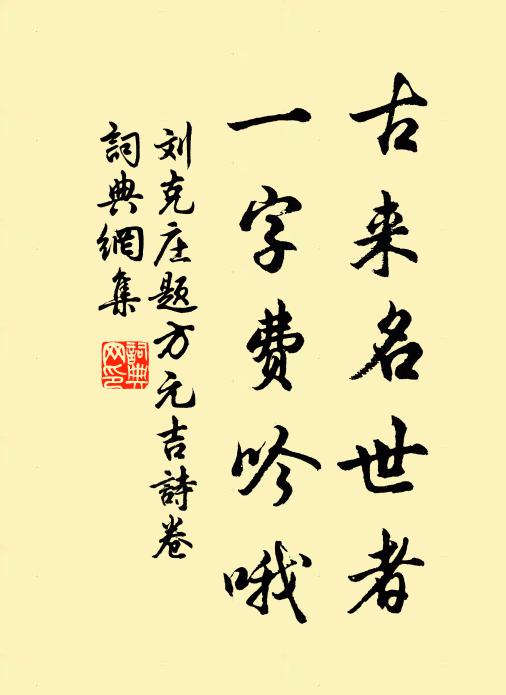 古来名世者
一字费吟哦
刘克庄题方元吉詩卷
詞典網集
詞典网印